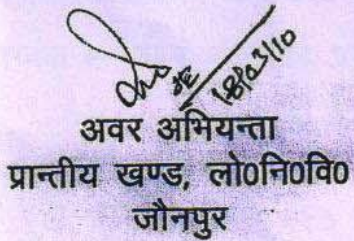 JE
18/03/10
अवर अभियन्ता
प्रान्तीय खण्ड, लो0नि0वि0
जौनपुर